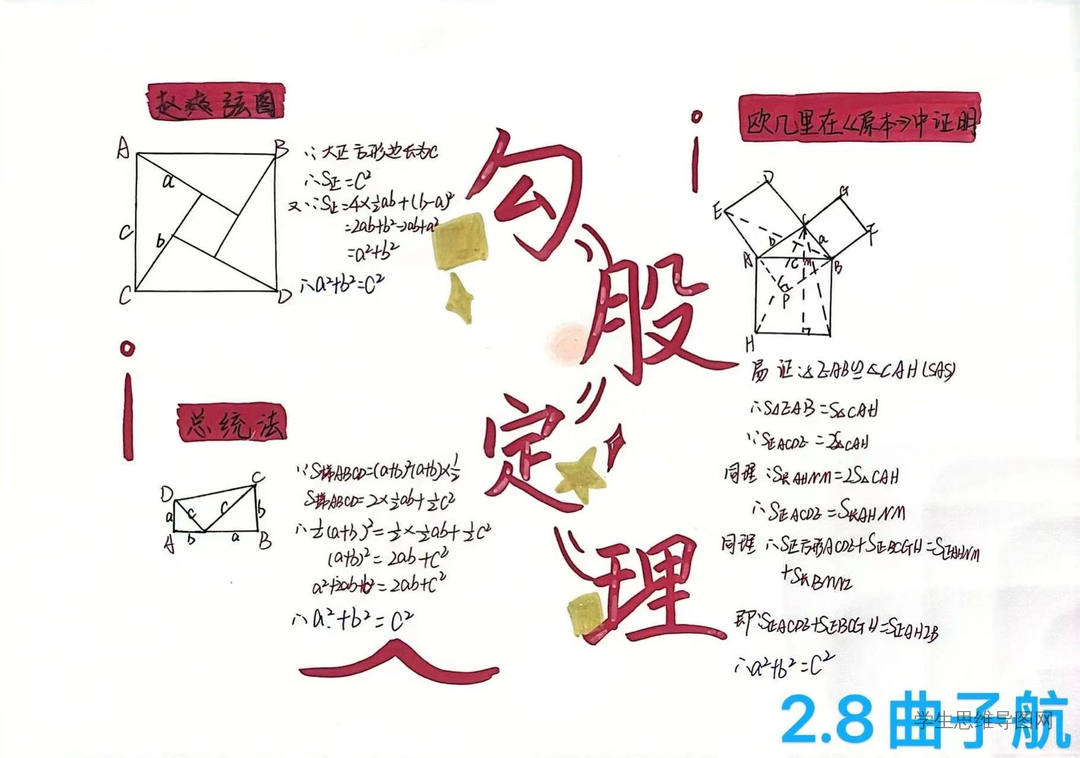 赵爽弦图
A
B
a
c
b
C
D
∵大正方形边长为C
∴S正=C²
又∵S正=4×½ab+(b-a)²
=2ab+b²-2ab+a²
=a²+b²
∴a²+b²=C²
勾股定理
总统法
D
C
a
c
c
b
A
b
a
B
∵S梯ABCD=(a+b)(a+b)×½
S梯ABCD=2×½ab+½C²
∴½(a+b)²=½×½ab+½C²
(a+b)²=2ab+C²
a²+2ab+b²=2ab+C²
∴a²+b²=C²
欧几里在《原本》中证明
D
G
E
F
b
a
A
c
M
B
P
H
易证:△EAB≌△CAH(SAS)
∴S△EAB=S△CAH
∵S正ACDE=2S△CAH
同理:SKAHNM=2S△CAH
∴S正ACDE=SKAHNM
同理 ∴S正方形ACDE+S正BCGH=S正AHNM
即:S正ACDE+S正BCGH=S正AHZB
∴a²+b²=C²
2.8曲子航
学生思维导图网